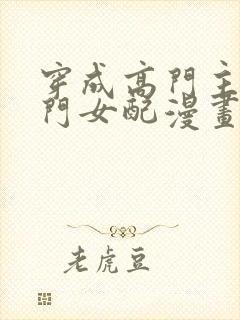 穿成高門主
門女配漫畫
老虎豆